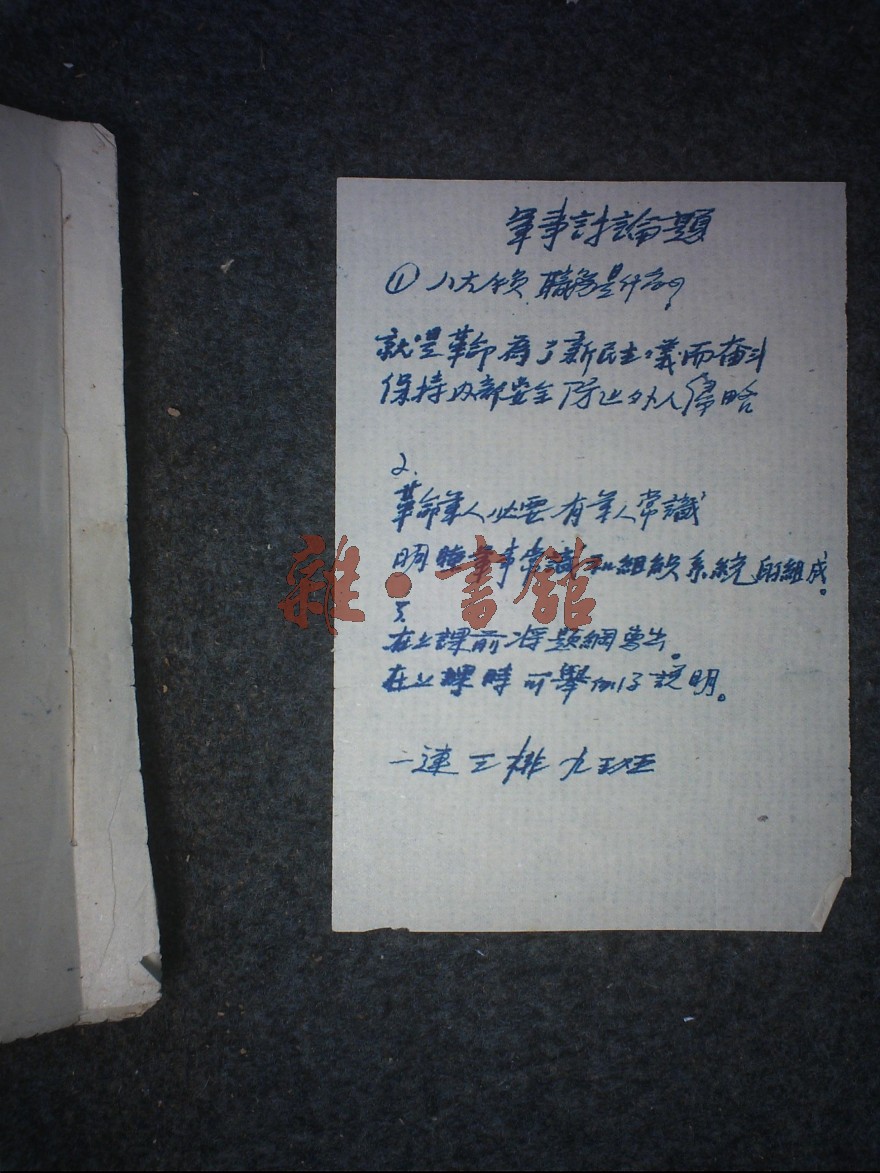 軍事討論題
① 八大負職務是什么?
就是革命為了新民主義而奮斗
保持內部安全防止外人侵略
2.
革命軍人必要有軍人常識
明瞭軍事常識和組織系統的組成。
3
在上課前將題綱寫出。
在上課時可舉例仔說明。
二連三排九班
雜·書館